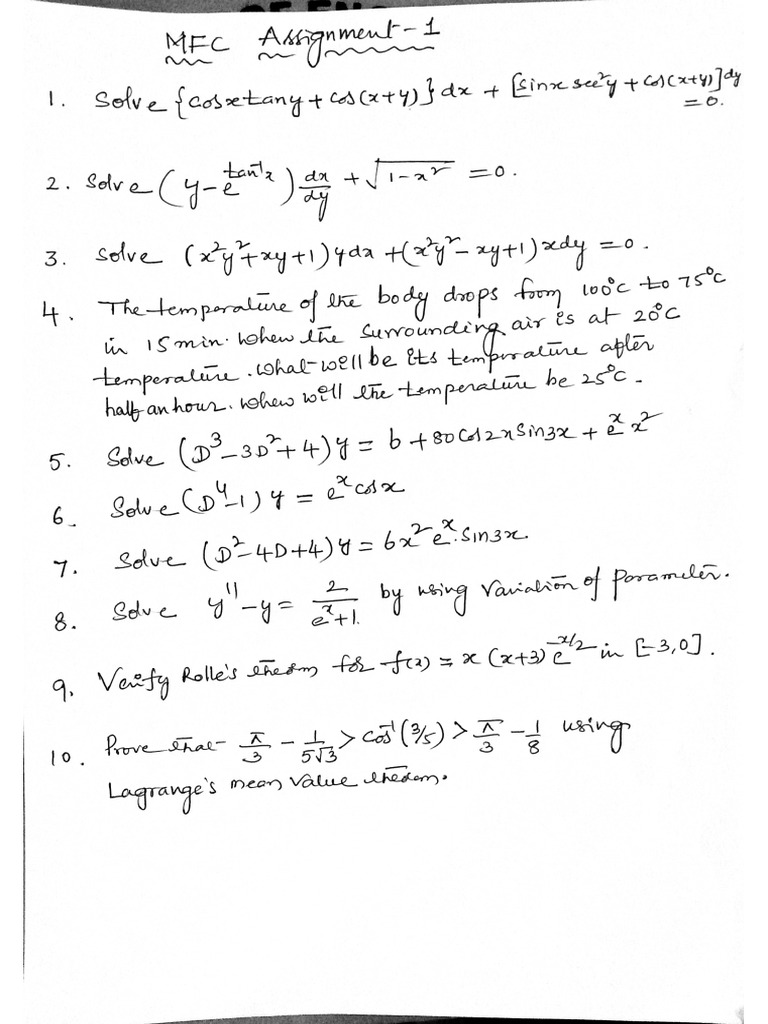 MFC Assignment-1
1. Solve {cosxtany+cos(x+y)}dx + [sinx sec²y + cos(x+y)]dy
=0.
2. Solve (y-e^{tan⁻¹x}) dx/dy + √(1-x²) =0.
3. Solve (x²y²+xy+1)ydx+(x²y²-xy+1)xdy=0.
4. The temperature of the body drops from 100°C to 75°C
in 15min. when the surrounding air is at 20°C
temperature. what will be its temperature after
half an hour. when will the temperature be 25°C.
5. Solve (D³-3D²+4)y = 6+80cos2xsin3x + e^x x²
6. Solve (D⁴-1)y = e^x cosx
7. Solve (D²-4D+4)y = 6x²e^x.sin3x.
8. Solve y''-y = 2/(e^x+1) by using Variation of parameter.
9. Verify Rolle's theorem for f(x) = x(x+3)e^{-x/2} in [-3,0].
10. Prove that π/3 - 1/(5√3) > cos⁻¹(3/5) > π/3 - 1/8 using
Lagrange's mean value theorem.